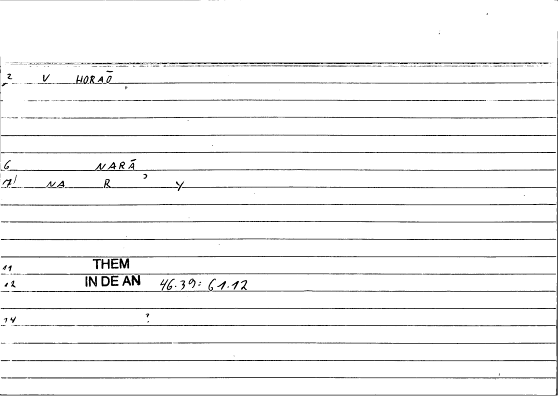 2 V HORAŌ
6 NARĀ
7! NA R ? Y
11 THEM
12 IN DE AN 46.39: 61.12
14 ?